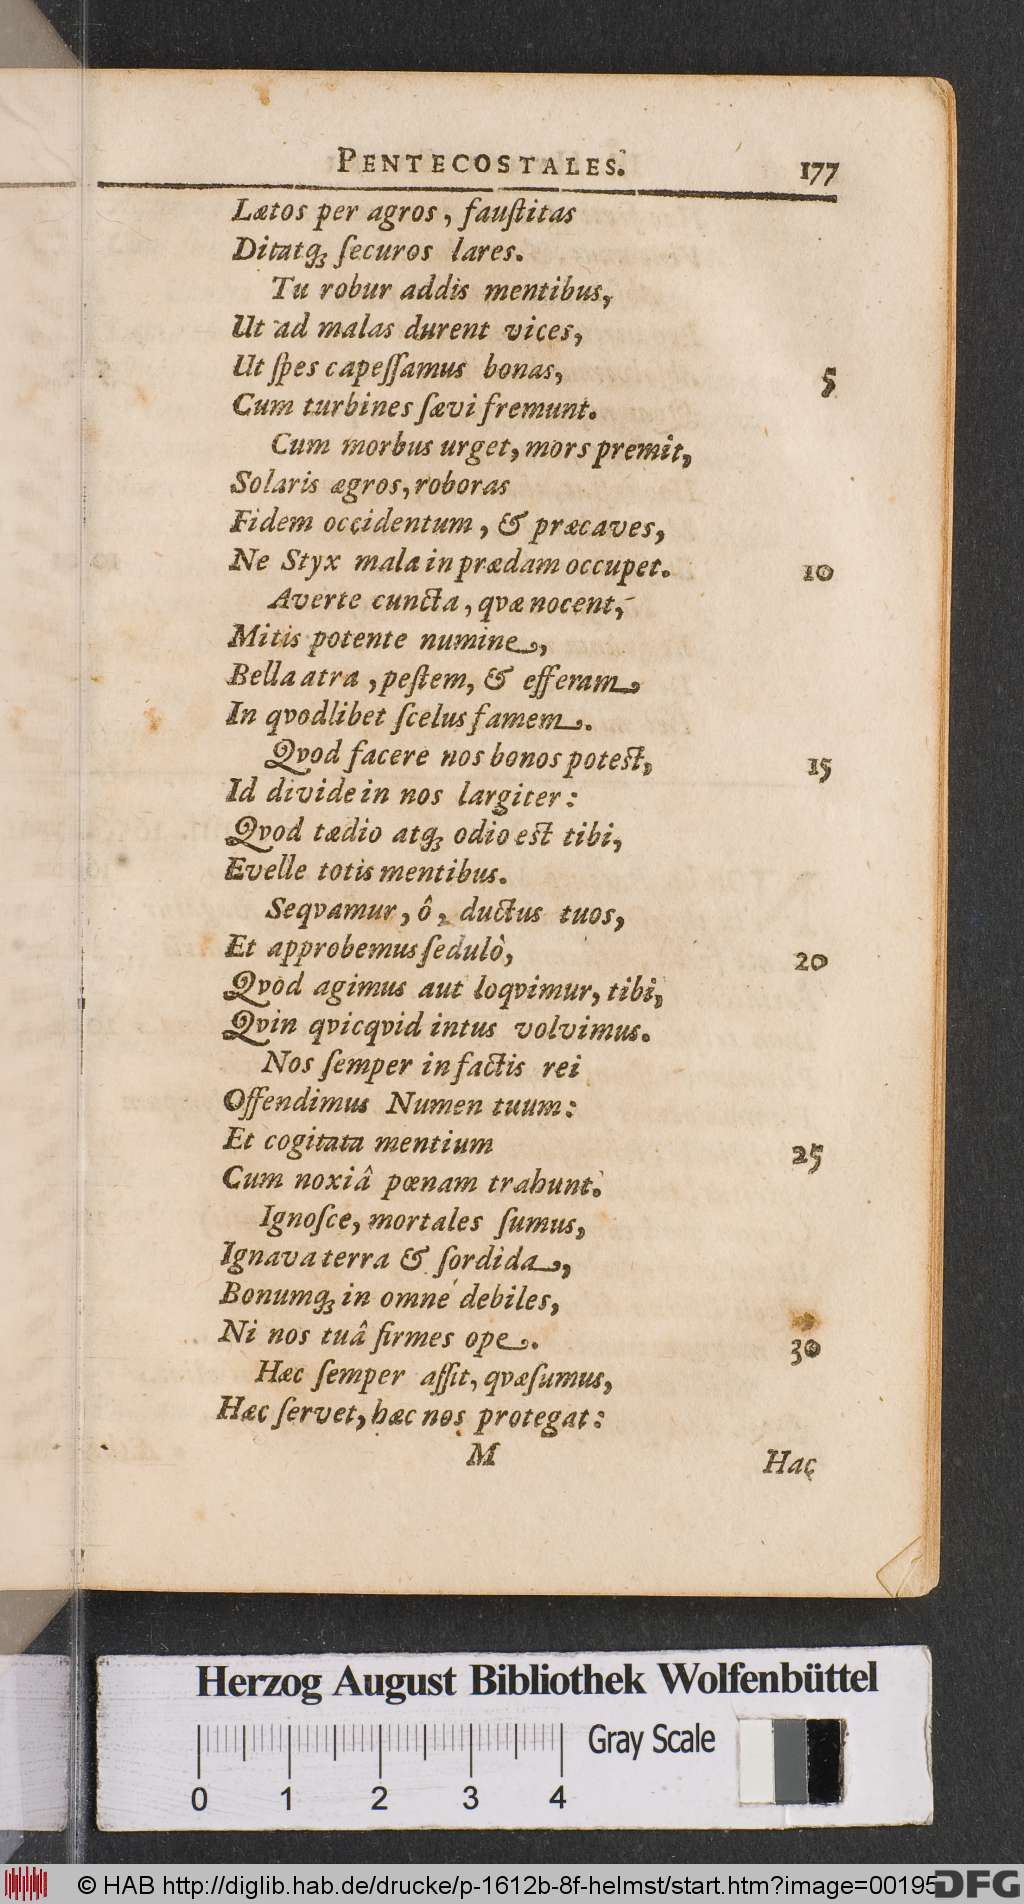 PENTECOSTALES. 177
Lætos per agros, fauſtitas
Ditatq́; ſecuros lares.
Tu robur addis mentibus,
Ut ad malas durent vices,
Ut ſpes capeſſamus bonas, 5
Cum turbines ſævi fremunt.
Cum morbus urget, mors premit,
Solaris ægros, roboras
Fidem occidentum, & præcaves,
Ne Styx mala in prædam occupet. 10
Averte cuncta, qvæ nocent,
Mitis potente numine,
Bella atra, peſtem, & efferam,
In qvodlibet ſcelus famem.
Qvod facere nos bonos poteſt, 15
Id divide in nos largiter:
Qvod tædio atq́; odio eſt tibi,
Evelle totis mentibus.
Seqvamur, ô, ductus tuos,
Et approbemus ſedulò, 20
Qvod agimus aut loqvimur, tibi,
Qvin qvicqvid intus volvimus.
Nos ſemper in factis rei
Offendimus Numen tuum:
Et cogitata mentium 25
Cum noxiâ pœnam trahunt.
Ignoſce, mortales ſumus,
Ignava terra & ſordida,
Bonumq́; in omne debiles,
Ni nos tuâ firmes ope. 30
Hæc ſemper aſſit, qvæſumus,
Hæc ſervet, hæc nos protegat:
M Hac
Herzog August Bibliothek Wolfenbüttel
Gray Scale
0 1 2 3 4
© HAB http://diglib.hab.de/drucke/p-1612b-8f-helmst/start.htm?image=00195
DFG